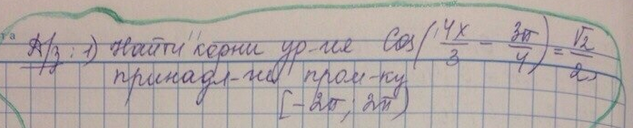 Д/з: 1) Найти корни ур-ия Cos(4x/3 - 3π/4) = √2/2,
принадл-ие пром-ку
[-2π; 2π)